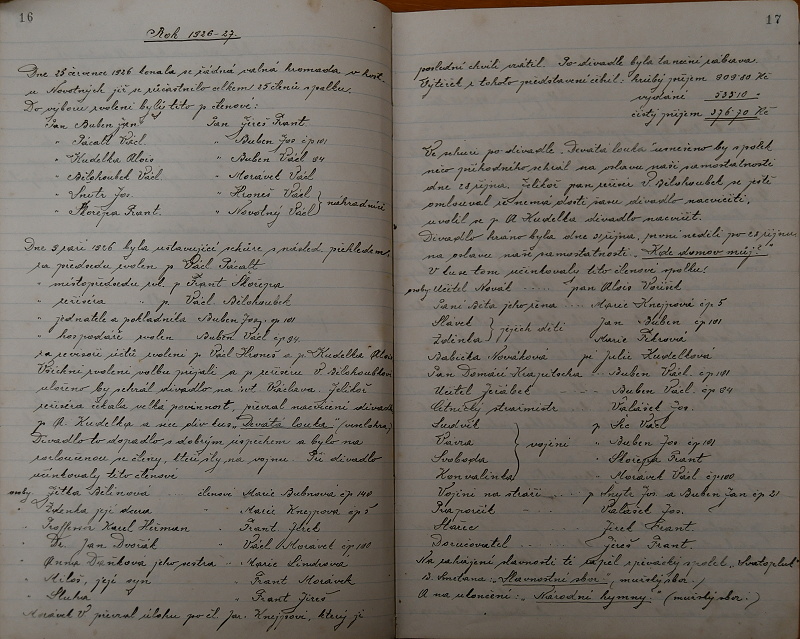 16
Rok 1926-27.
Dne 25 července 1926 konala se řádná valná hromada v host.
u Novotných již se zúčastnilo celkem 25 členů spolku.
Do výboru zvoleni byli tito p. členové:
Pan Buben Jan Pan Jireš Frant
" Pácalt Václ " Buben Jos čp 101
" Kudelka Alois " Buben Václ 84
" Bělohoubek Václ " Morávek Václ
" Šnytr Jos. " Hroneš Václ } náhradníci
" Skořepa Frant. " Novotný Václ
Dne 3 září 1926 byla ustavující schůze s násled. přehledem.
za předsedu zvolen p. Václ Pácalt
" místopředsedu vl. p Frant Skořepa
" režiséra " p Václ Bělohoubek
" jednatele a pokladníka Buben Jos. čp 101
" hospodáře zvolen Buben Václ čp 84.
za revisory účtů zvoleni p. Václ Hroneš a p. Kudelka Alois
Všichni zvolení volbu přijali a p. režiséru V Bělohoubkovi
uloženo by sehrál divadlo na sv. Václava. Jelikož
režiséra čekala velká povinnost, převzal nacvičení divadla
p. A. Kudelka a sice div kus „Devátá louka" (veselohra)
Divadlo to dopadlo s dobrým úspěchem a bylo na
rozloučenou se členy, kteří šli na vojnu. Při divadle
účinkovaly tito členové
osoby Jitka Bělinova členové Marie Bubnová čp 140
" Zdenka její dcera " Marie Knejpová čp 5
" Proffesor Karel Heřman " Frant Jirek
" Dr. Jan Dvořák " Václ Morávek čp 100
" Anna Dankova jeho sestra " Marie Lindrova
" Miloš, její syn " Frant Morávek
" Sluha " Frant Jireš
Morávek V převzal úlohu po čl. Jar. Knejpovi, který ji
17
poslední chvíli vrátil. Po divadle byla taneční zábava.
Výtěžek z tohoto představení činil: hrubý příjem 909·80 Kč
vydání 533·10 "
čistý příjem 376·70 Kč
Ve schůzi po divadle „Devátá louka" usneseno by spolek
něco příhodného sehrál na oslavu naší samostatnosti
dne 28 října. Jelikož pan režisér V Bělohoubek se ještě
omlouval že nemá dosti času divadlo nacvičiti,
uvolil se p. A Kudelka divadlo nacvičit.
Divadlo hráno byla dne 31 října, první neděli po 28 říjnu
na oslavu naší samostatnosti. „Kde domov můj?"
V kuse tom účinkovaly tito členové spolku:
osoby Učitel Novák pan Alois Vojíček
Paní Běta jeho žena Marie Knejpová čp 5
Slávek } jejich děti Jan Buben čp 101
Zdeňka Marie Pekrová
Babička Nováková pí Julie Kudelková
Pan Domácí Buben Václ. čp 101
Učitel Jeřábek Buben Václ. čp 84
Četnický strážmistr Valášek Jos.
Ludvík } vojíni p Šíc Václ
Vávra " Buben Jos čp 101
Svoboda " Skořepa Frant
Konvalinka " Morávek Václ čp 100
Vojíni na stráži p Šnytr Jos. a Buben Jan čp 21
Praporčík Valášek Jos.
Stařec Jirek Frant.
Doručovatel Jireš Frant.
Na zahájení slavnosti té zapěl spěvácký spolek „Svatopluk"
B. Smetana: „Slavnostní sbor" (mužský sbor.)
A na ukončení: „Národní hymny." (mužský sbor:)